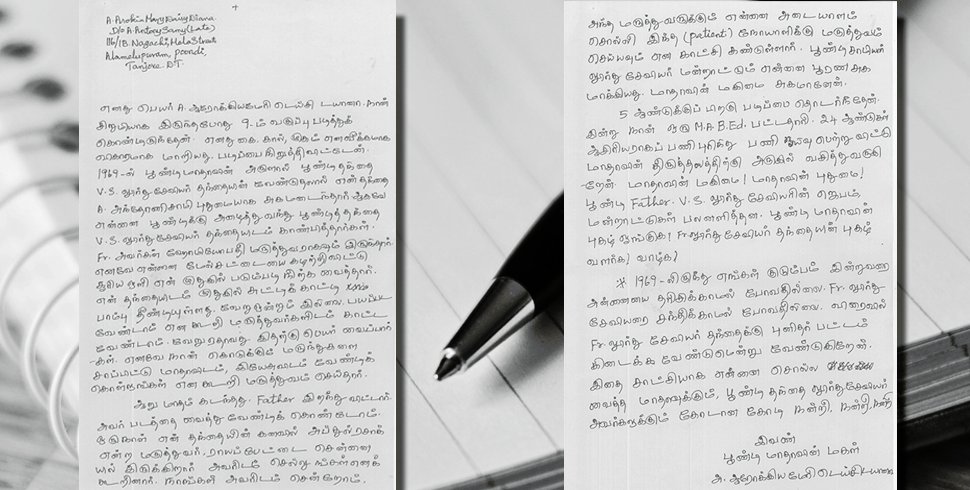 A. Arokia Mary Daisy Diana
D/o A. Antony Samy (Late)
116/1B. Nagachi, Hala Street
Alamelupuram, Poondi,
Tanjore DT.
எனது பெயர் A. ஆரோக்கியமேரி டெய்சி டயானா. நான்
சிறுமியாக இருந்தபோது 9-ம் வகுப்பு படித்துக்
கொண்டிருந்தேன். எனது கை, கால், முகம் எல்லாம்
விகாரமாக மாறியது. படிப்பை நிறுத்திவிட்டேன்.
1969-ல் பூண்டி மாதாவின் அருளால் பூண்டி தந்தை
V.S. லூர்து சேவியர் தந்தையின் வேண்டுதலால் என் தந்தை
A. அந்தோணிசாமி புதுமையாக சுகமடைந்தார். ஆகவே
என்னை பூண்டிக்கு அழைத்து வந்து பூண்டி தந்தை
V.S. லூர்து சேவியர் தந்தையிடம் காண்பித்தார்கள்.
Fr. அவர்கள் ஹோமியோபதி மருத்துவராகவும் இருந்தார்.
எனவே என்னை மேல்சட்டையை கழற்றிவிட்டு
சூரிய ஒளி என் முதுகில் படும்படி நிற்க வைத்தார்.
என் தந்தையிடம் முதுகில் சுட்டிக் காட்டி
பாம்பு தீண்டியுள்ளது. வேறு ஒன்றும் இல்லை. பயப்பட
வேண்டாம் என கூறி மருத்துவர்களிடம் காட்ட
வேண்டாம். வேறு ஏதாவது இதற்கு பெயர் வைப்பார்
-கள். எனவே நான் கொடுக்கும் மருந்துகளை
சாப்பிட்டு மாதாவிடம், இயேசுவிடம் வேண்டிக்
கொள்ளுங்கள் என கூறி மருத்துவம் செய்தார்.
ஆறு மாதம் கடந்தது. Father இறந்து விட்டார்.
அவர் படத்தை வைத்து வேண்டிக் கொண்டோம்.
ஒருநாள் என் தந்தையின் கனவில் அப்துல் ரசாக்
என்ற மருத்துவர், ராயப்பேட்டை சென்னை
யில் இருக்கிறார். அவரிடம் செல்லுங்கள் எனக்
கூறினார். நாங்கள் அவரிடம் சென்றோம்.
அந்த மருத்துவருக்கும் என்னை அடையாளம்
சொல்லி இந்த (patient) நோயாளிக்கு மருத்துவம்
செய்யவும் என காட்சி கண்டுள்ளார். பூண்டி சாமியார்
லூர்து சேவியர் மன்றாட்டும் என்னை பூரண சுக
மாக்கியது. மாதாவின் மகிமை சுகமானேன்.
5 ஆண்டுக்குப் பிறகு படிப்பை தொடர்ந்தேன்.
இன்று நான் ஒரு M.A.B.Ed. பட்டதாரி. 24 ஆண்டுகள்
ஆசிரியராகப் பணி புரிந்து பணி ஓய்வு பெற்று விட்டு
மாதாவின் திருத்தலத்திற்கு அருகில் வசித்து வருகி
-றேன். மாதாவின் மகிமை! மாதாவின் புதுமை!
பூண்டி Father. V.S. லூர்து சேவியரின் ஜெபம்
மன்றாட்டுகள் பலனளித்தன. பூண்டி மாதாவின்
புகழ் ஓங்குக! Fr. லூர்து சேவியர் தந்தையின் புகழ்
வளர்க! வாழ்க!
* 1969-லிருந்து எங்கள் குடும்பம் இன்றுவரை
அன்னையை தரிசிக்காமல் போவதில்லை. Fr. லூர்து
சேவியரை சந்திக்காமல் போவதில்லை. விரைவில்
Fr. லூர்து சேவியர் தந்தைக்கு புனிதர் பட்டம்
கிடைக்க வேண்டுமென்று வேண்டுகிறேன்.
இதை சாட்சியாக என்னை சொல்ல
வைத்த மாதாவுக்கும், பூண்டி தந்தை லூர்துசேவியர்
அவர்களுக்கும் கோடான கோடி நன்றி, நன்றி, நன்றி
இவண்
பூண்டி மாதாவின் மகள்
அ. ஆரோக்கிய மேரி டெய்சி டயானா